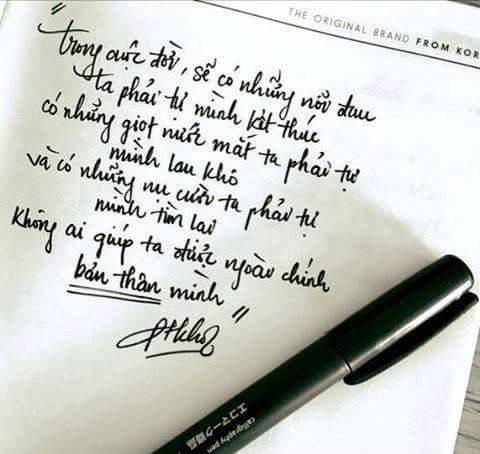 THE ORIGINAL BRAND FROM KOR
"trong cuộc đời, sẽ có những nỗi đau
ta phải tự mình kết thúc
có những giọt nước mắt ta phải tự
mình lau khô
và có những nụ cười ta phải tự
mình tìm lại
không ai giúp ta được ngoài chính
bản thân mình"
calligraphy pen
エコマーク商品